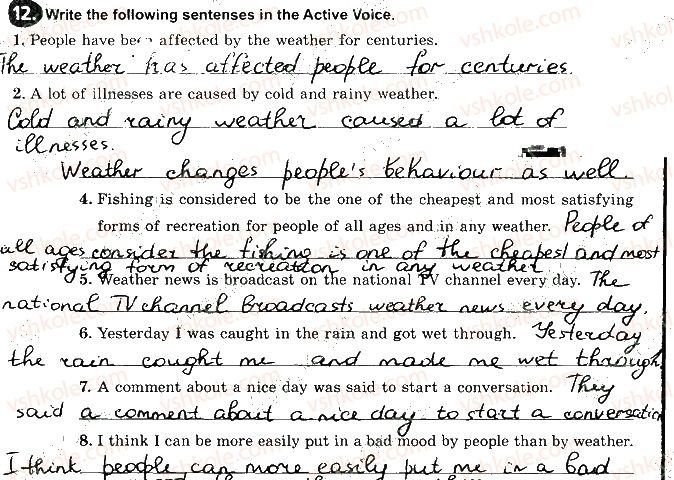 12. Write the following sentenses in the Active Voice.
1. People have be affected by the weather for centuries.
The weather has affected people for centuries.
2. A lot of illnesses are caused by cold and rainy weather.
Cold and rainy weather caused a lot of
illnesses.
Weather changes people's behaviour as well.
4. Fishing is considered to be the one of the cheapest and most satisfying
forms of recreation for people of all ages and in any weather. People of
all ages consider the fishing is one of the cheapest and most
satisfying form of recreation in any weather
5. Weather news is broadcast on the national TV channel every day. The
national TV channel broadcasts weather news every day.
6. Yesterday I was caught in the rain and got wet through. Yesterday
the rain cought me and made me wet through.
7. A comment about a nice day was said to start a conversation. They
said a comment about a nice day to start a conversation
8. I think I can be more easily put in a bad mood by people than by weather.
I think people can more easily put me in a bad